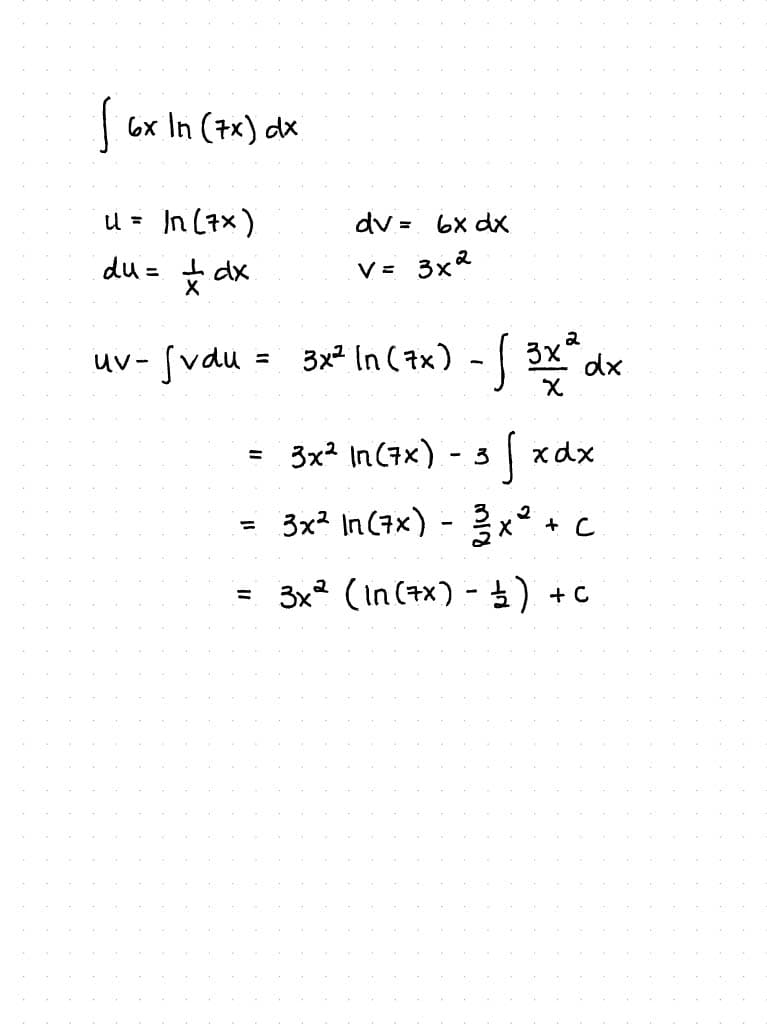 ∫ 6x ln (7x) dx
u = ln (7x) dv = 6x dx
du = 1/x dx v = 3x²
uv - ∫ v du = 3x² ln (7x) - ∫ 3x²/x dx
= 3x² ln (7x) - 3 ∫ x dx
= 3x² ln (7x) - 3/2 x² + C
= 3x² (ln (7x) - 1/2) + C